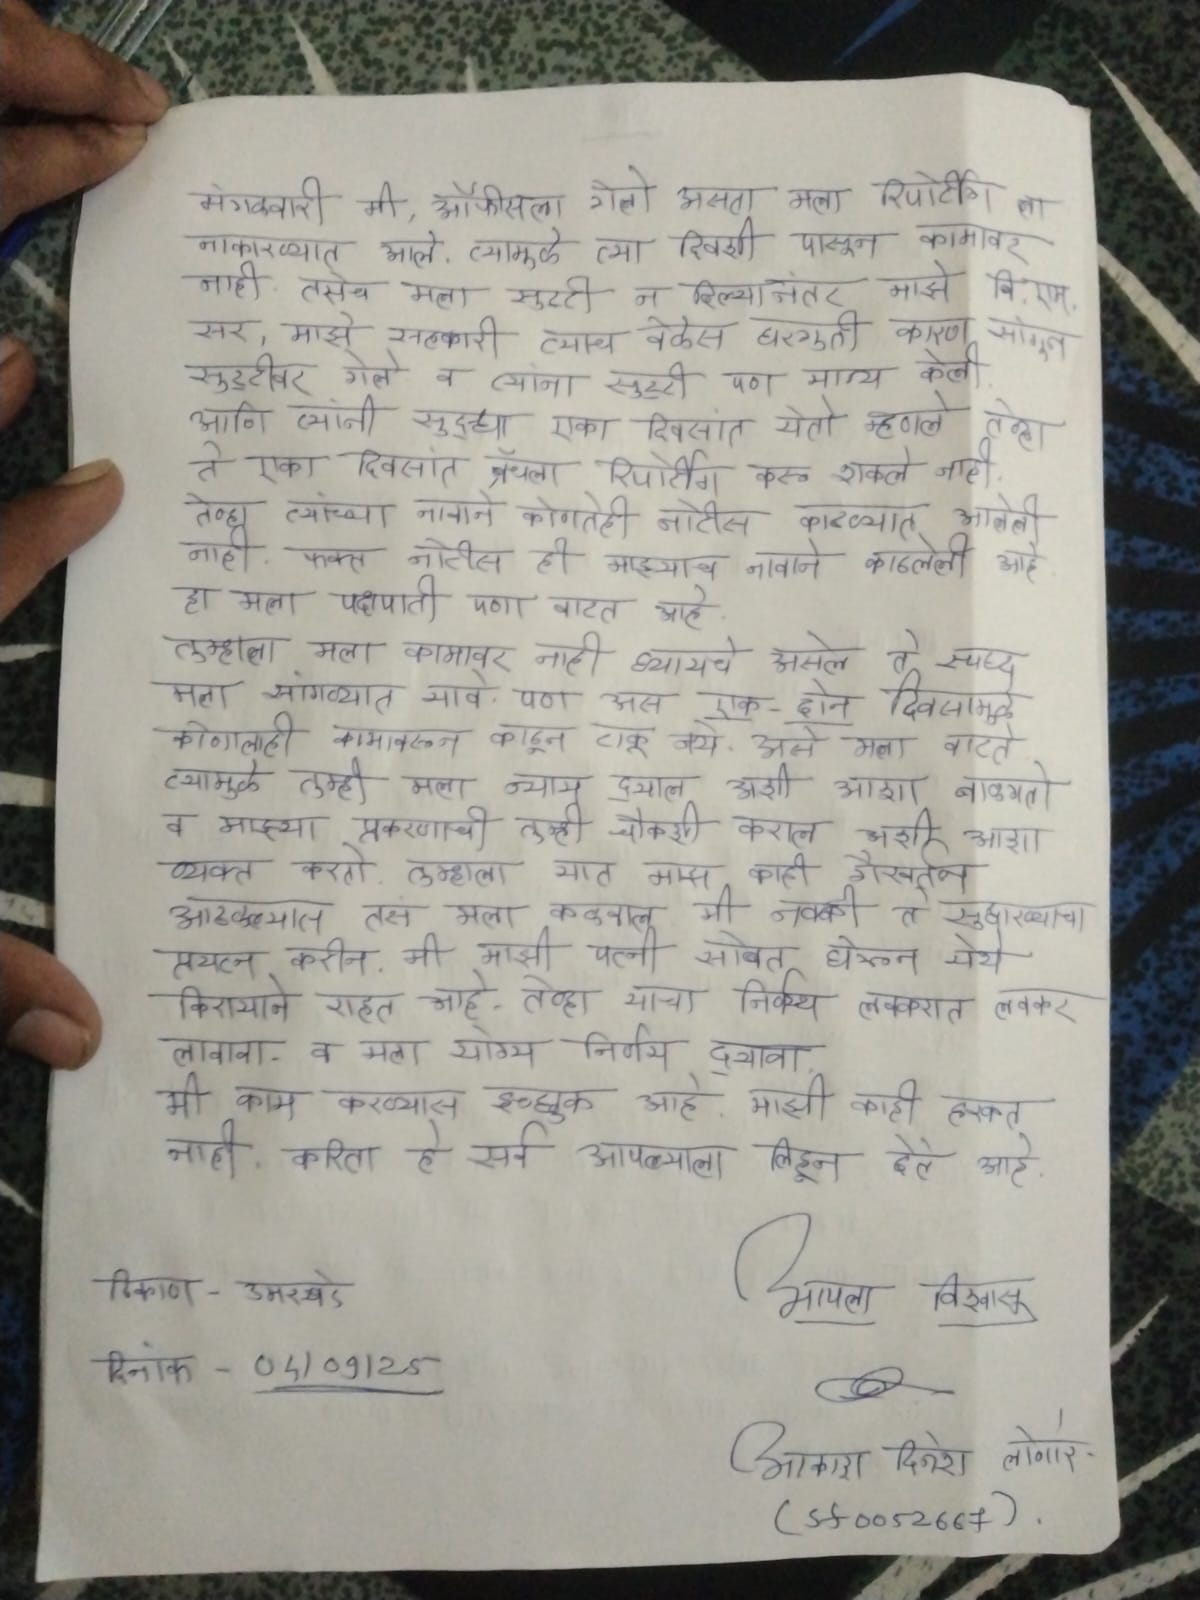 मंगळवारी मी, ऑफीसला गेलो असता मला रिपोर्टींग ला
नाकारण्यात आले. त्यामुळे त्या दिवशी पासून कामावर
नाही. तसेच मला सुटटी न दिल्यानंतर माझे बि.एम.
सर, माझे सहकारी त्याच वेळेस घरगुती कारण सांगून
सुट्टीवर गेले व त्यांना सुट्टी पण मान्य केली.
आणि त्यांनी सुद्धा एका दिवसांत येतो म्हणले तेव्हा
ते एका दिवसांत ब्रँचला रिपोर्टींग करू शकले नाही.
तेव्हा त्यांच्या नावाने कोणतेही नोटीस काढण्यात आलेली
नाही. फक्त नोटीस ही माझ्याच नावाने काढलेली आहे
हा मला पक्षपाती पणा वाटत आहे.
तुम्हाला मला कामावर नाही घ्यायचे असेल ते स्पष्ट
मला सांगण्यात यावे. पण अस एक-दोन दिवसामुळे
कोणालाही कामावरून काढून टाकू नये. असे मला वाटते
त्यामुळे तुम्ही मला न्याय द्याल अशी आशा बाळगतो
व माझ्या प्रकरणाची तुम्ही चौकशी कराल अशी आशा
व्यक्त करतो. तुम्हाला यात माझ काही गैरवर्तन
आढळल्यास तसं मला कळवाल मी नक्की ते सुधारण्याचा
प्रयत्न करीन. मी माझी पत्नी सोबत घेऊन येथे
किरायाने राहत आहे. तेव्हा याचा निर्णय लवकरात लवकर
लावावा. व मला योग्य निर्णय द्यावा.
मी काम करण्यास इच्छुक आहे. माझी काही हरकत
नाही. करिता हे सर्व आपल्याला लिहून देते आहे.
ठिकाण - उमरखेड
दिनांक - 04/09/25
आपला विश्वासू
आकाश दिनेश
(Sf0052667).